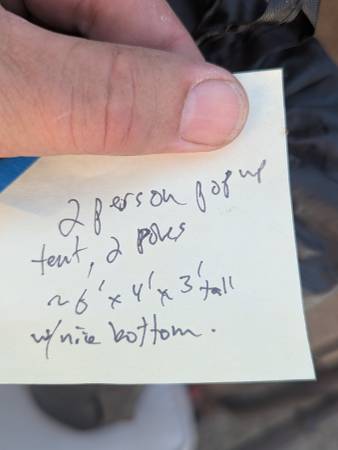 2 person pop up
tent, 2 poles
~ 6' x 4' x 3' tall
w/nice bottom.